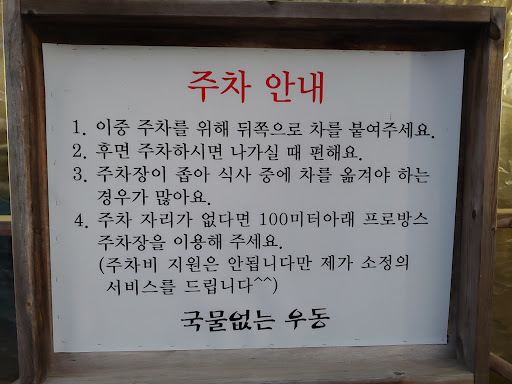 주차 안내
1. 이중 주차를 위해 뒤쪽으로 차를 붙여주세요.
2. 후면 주차하시면 나가실 때 편해요.
3. 주차장이 좁아 식사 중에 차를 옮겨야 하는
경우가 많아요.
4. 주차 자리가 없다면 100미터아래 프로방스
주차장을 이용해 주세요.
(주차비 지원은 안됩니다만 제가 소정의
서비스를 드립니다^^)
국물없는 우동